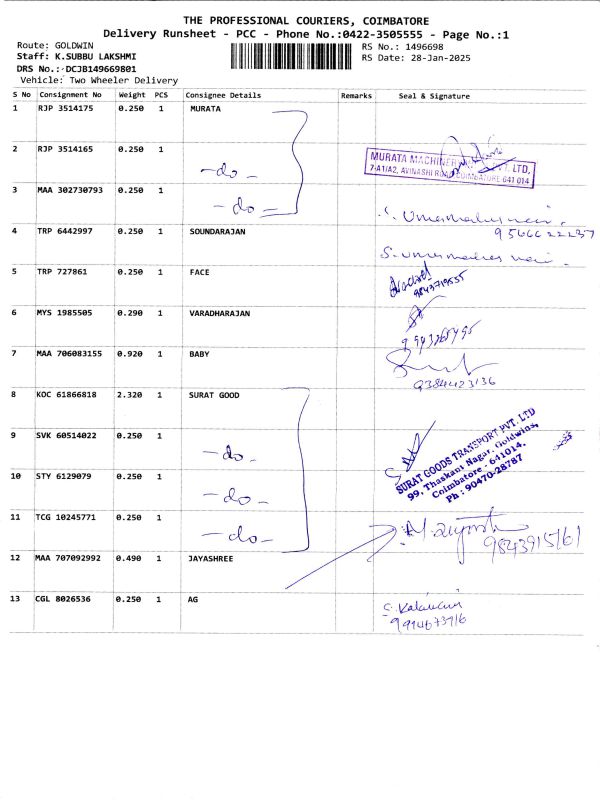 THE PROFESSIONAL COURIERS, COIMBATORE
Delivery Runsheet - PCC - Phone No.:0422-3505555 - Page No.:1
Route: GOLDWIN
RS No.: 1496698
Staff: K.SUBBU LAKSHMI
RS Date: 28-Jan-2025
DRS No.: DCJB149669801
Vehicle: Two Wheeler Delivery
S No Consignment No Weight PCS Consignee Details Remarks Seal & Signature
1 RJP 3514175 0.250 1 MURATA
2 RJP 3514165 0.250 1
-do-
MURATA MACHINERY PVT. LTD,
7-A1/A2, AVINASHI ROAD, COIMBATORE-641 014
3 MAA 302730793 0.250 1
-do-
9566622237
4 TRP 6442997 0.250 1 SOUNDARAJAN
5 TRP 727861 0.250 1 FACE
9843719555
6 MYS 1985505 0.290 1 VARADHARAJAN
7 MAA 706083155 0.920 1 BABY
9384423136
8 KOC 61866818 2.320 1 SURAT GOOD
9 SVK 60514022 0.250 1
-do-
SURAT GOODS TRANSPORT PVT. LTD
99, Thaskani Nagar, Goldwins,
Coimbatore - 641014.
Ph : 90470-28787
10 STY 6129079 0.250 1
-do-
11 TCG 10245771 0.250 1
-do-
9843915161
12 MAA 707092992 0.490 1 JAYASHREE
13 CGL 8026536 0.250 1 AG
9994673916